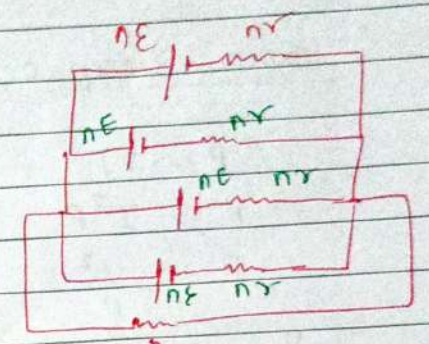 nε nr
nE nr
nE nr
nε nr